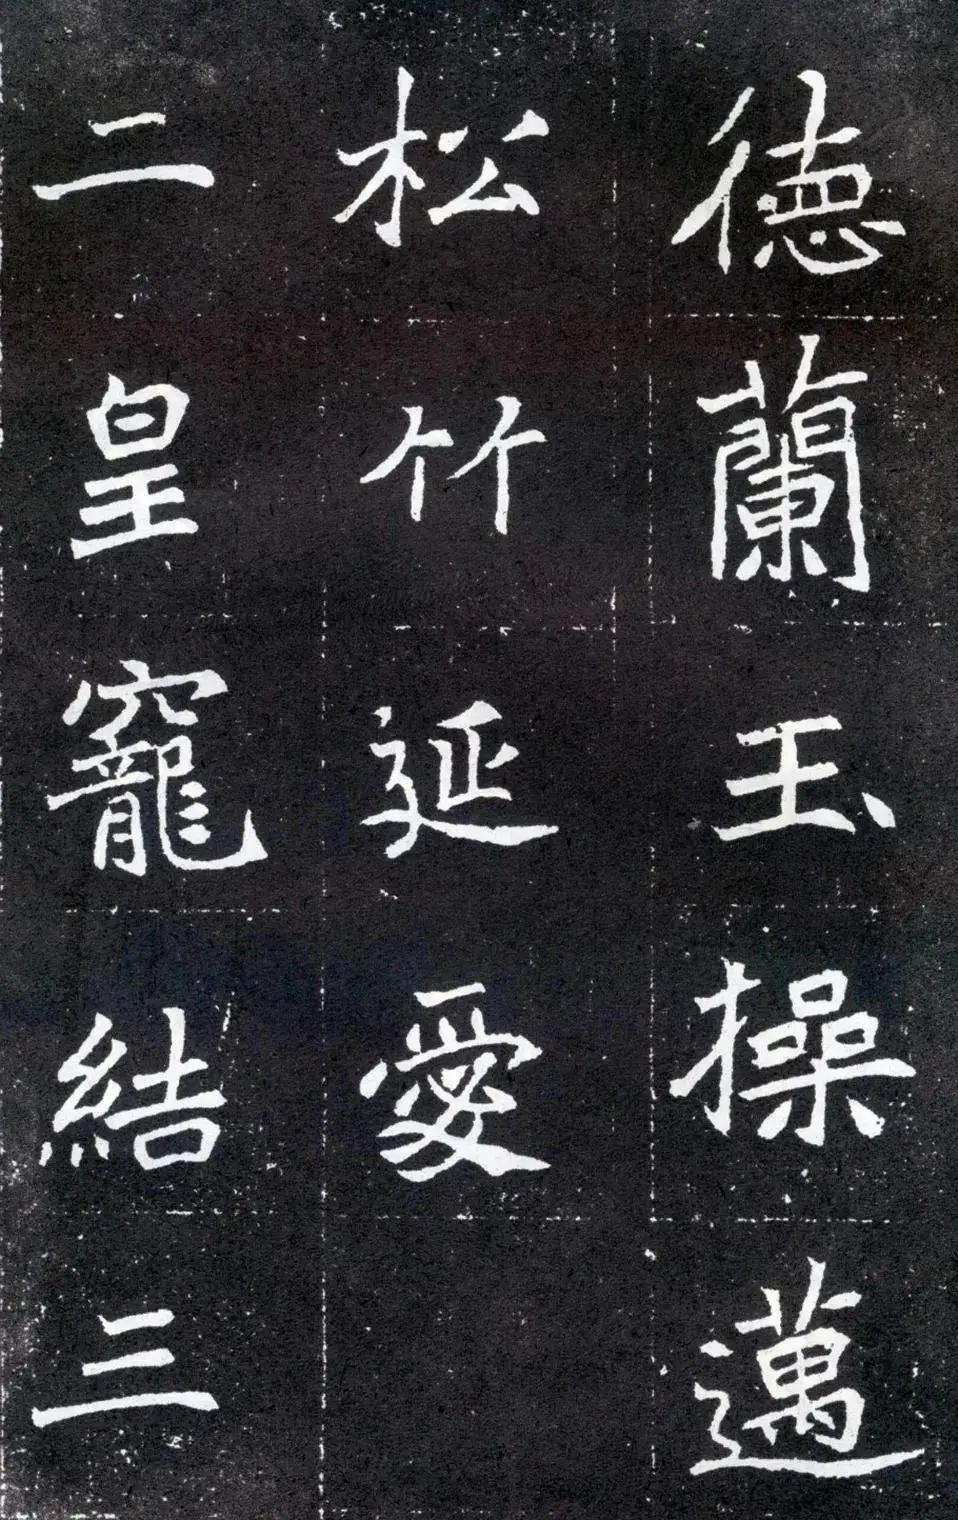 德蘭玉操邁
松竹延愛
二皇寵結三